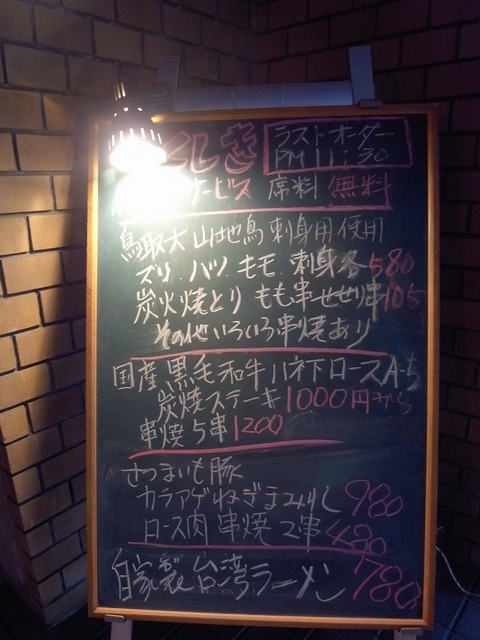 くしき
ラストオーダー
PM 11:30
サービス 席料 無料
鳥取大山地鳥刺身用使用
ズリ.ハツ.モモ.刺身各580
炭火焼とり もも串せせり串105
その他いろいろ串焼あり
国産黒毛和牛ハネ下ロースA-5
炭焼ステーキ1000円から
串焼5串1200
さつまいも豚
カラアゲねぎまみれ980
ロース肉 串焼 2串480
自家製台湾ラーメン780